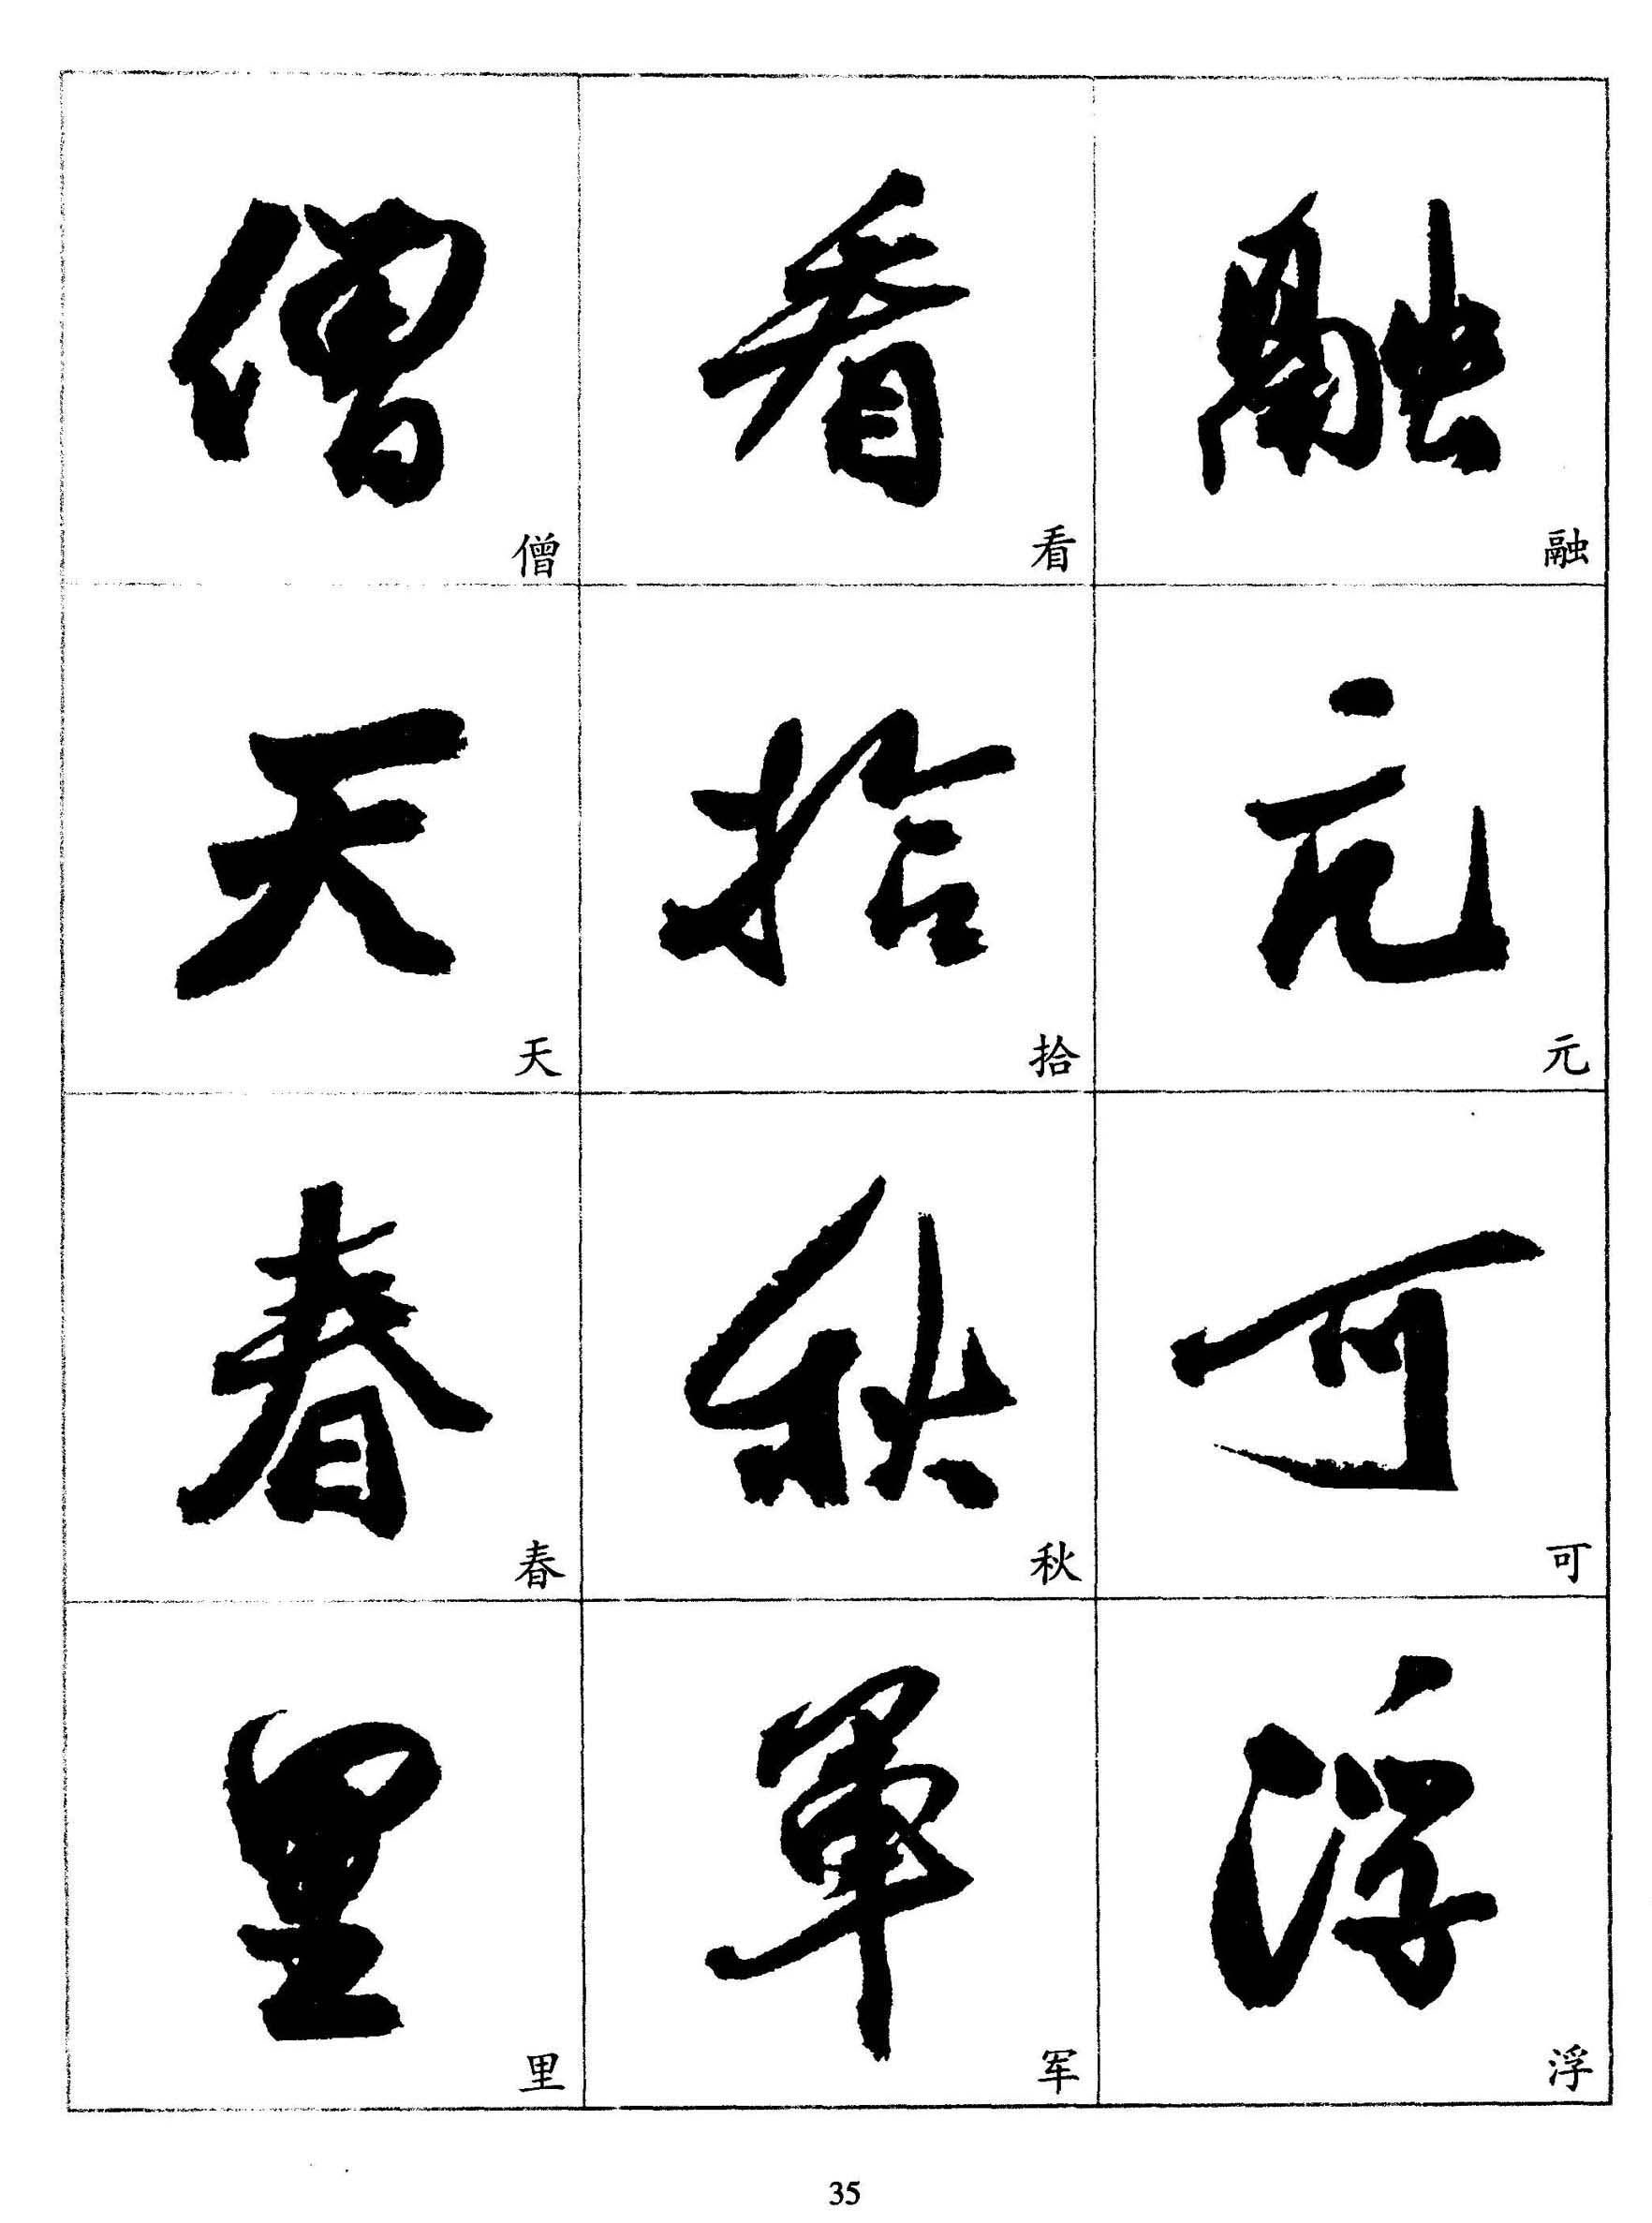 僧 看 融
僧 看 融
天 拾 元
天 拾 元
春 秋 可
春 秋 可
里 軍 浮
里 军 浮
35